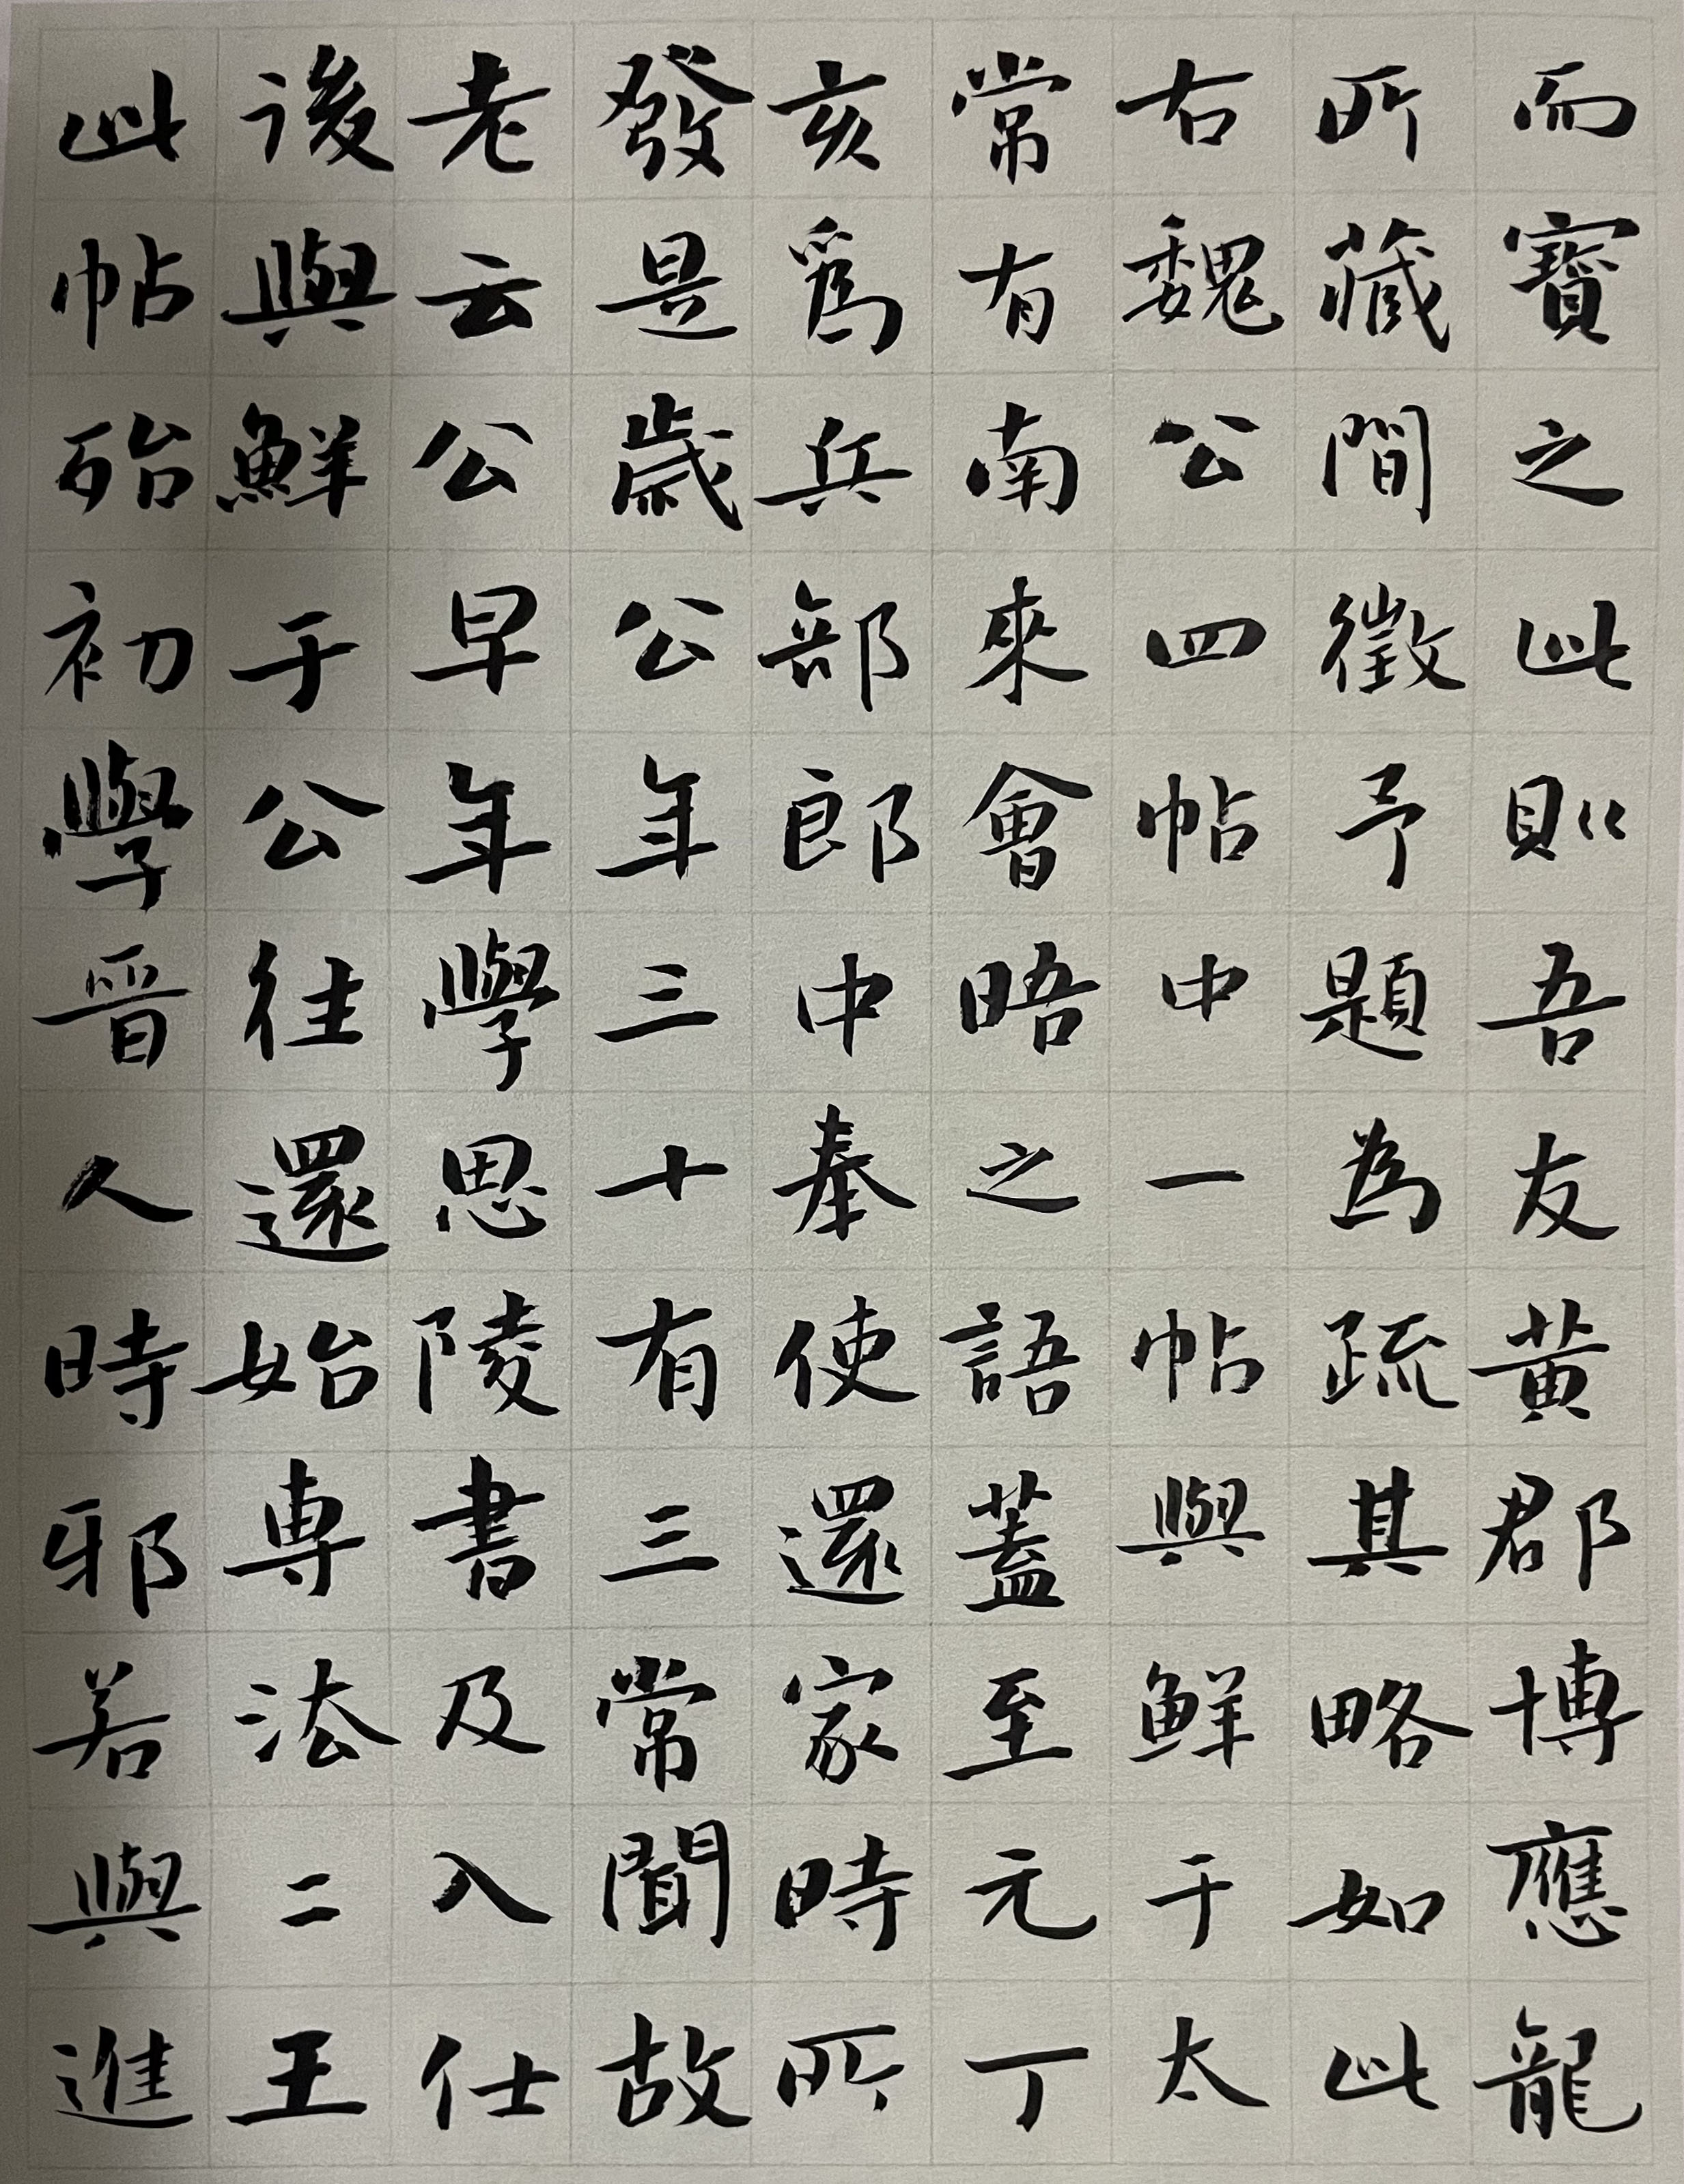 而寶之此則吾友黃郡博應龍
所藏間徵予題為疏其略如此
右魏公四帖中一帖與鮮于太
常有南來會晤之語蓋至元丁
亥爲兵部郎中奉使還家時所
發是歲公年三十有三常聞故
老云公早年學思陵書及入仕
後與鮮于公往還始専法二王
此帖殆初學晉人時邪若與進